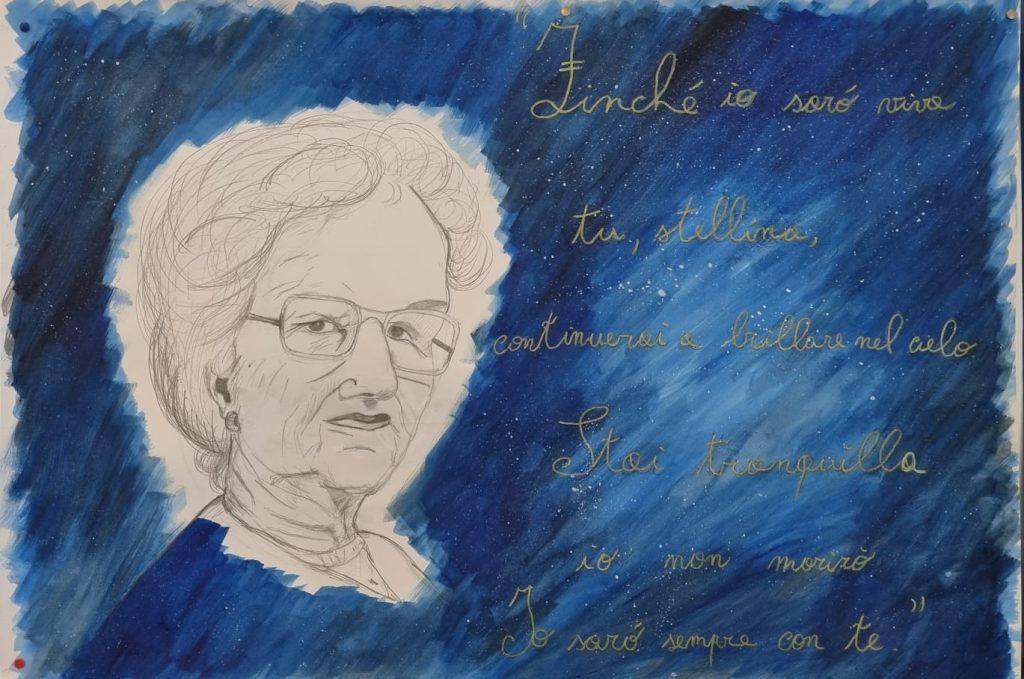 "Finché io saró viva
tu, stellina,
continuerai a brillare nel cielo
Stai tranquilla
io non morirò
Io saró sempre con te."